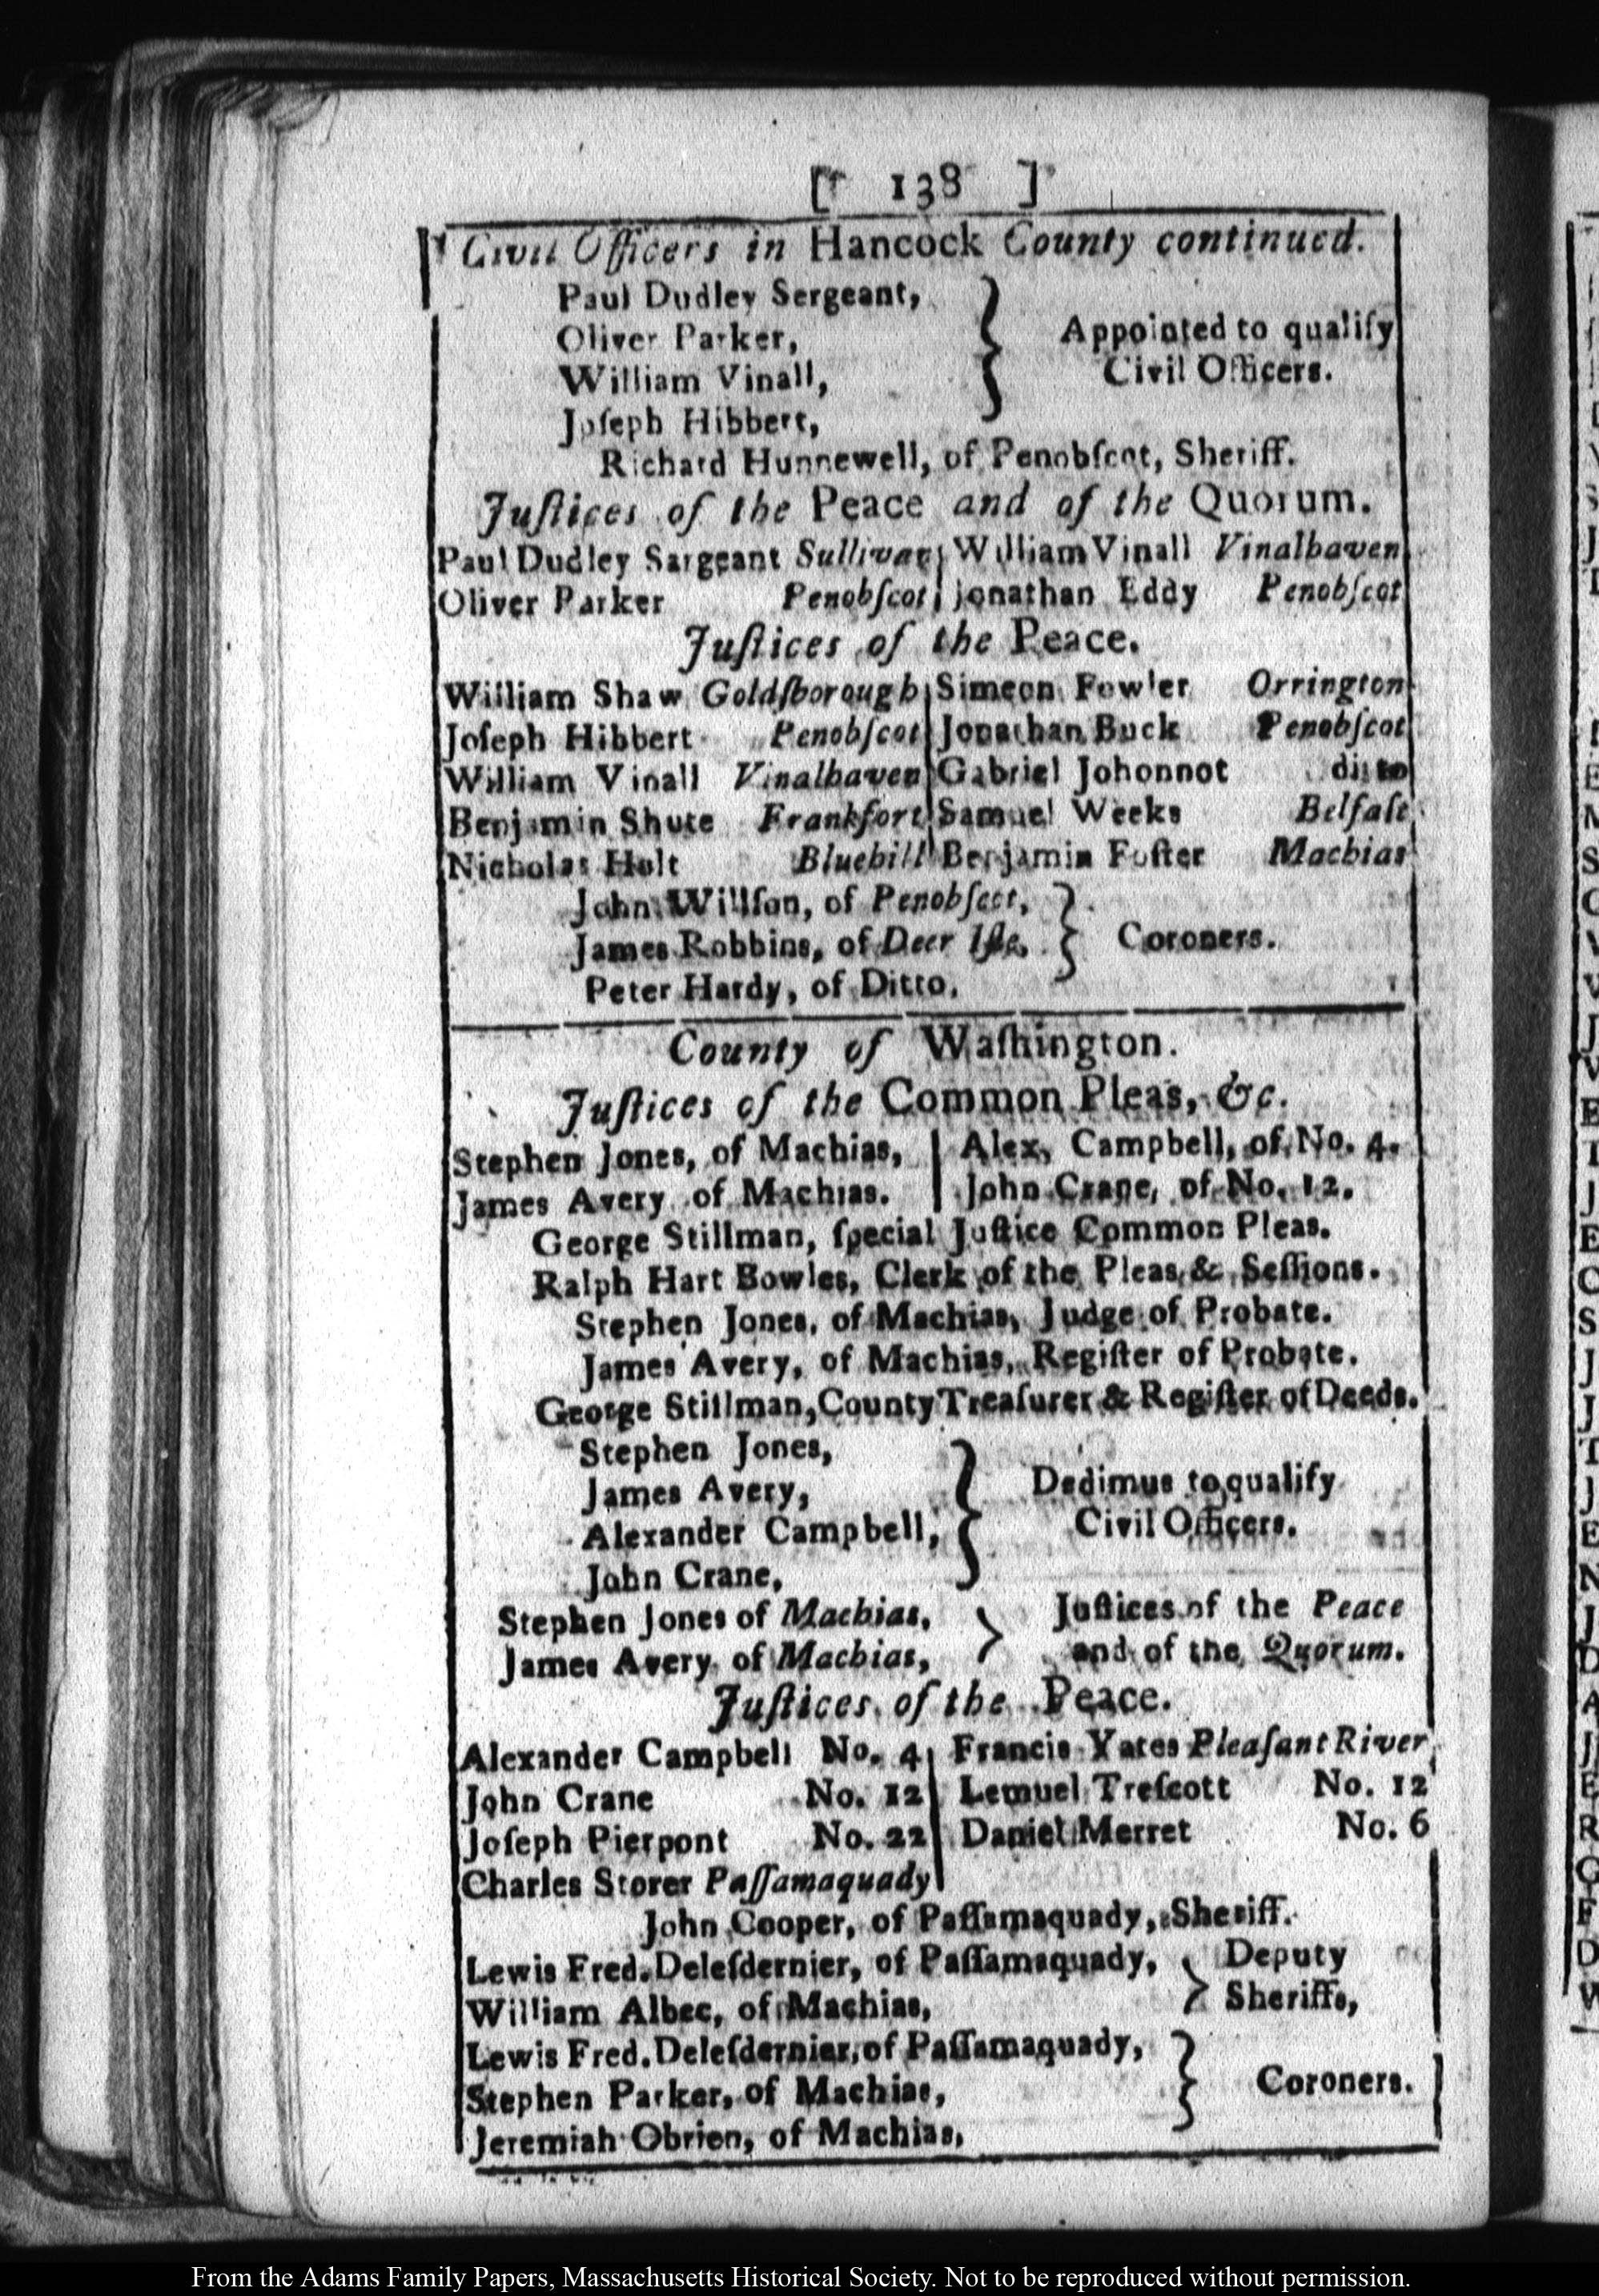 [ 138 ]
Civil Officers in Hancock County continued.
Paul Dudley Sergeant,
Oliver Parker,
William Vinall,
Joſeph Hibbert,
} Appointed to qualify
Civil Officers.
Richard Hunnewell, of Penobſcot, Sheriff.
Juſtices of the Peace and of the Quorum.
Paul Dudley Sargeant Sullivan | William Vinall Vinalhaven
Oliver Parker Penobſcot | Jonathan Eddy Penobſcot
Juſtices of the Peace.
William Shaw Goldſborough | Simeon Fowler Orrington
Joſeph Hibbert Penobſcot | Jonathan Buck Penobſcot
William Vinall Vinalhaven | Gabriel Johonnot ditto
Benjamin Shute Frankfort | Samuel Weeks Belfaſt
Nicholas Holt Bluehill | Benjamin Foſter Machias
John Willſon, of Penobſcot,
James Robbins, of Deer Iſle,
Peter Hardy, of Ditto,
} Coroners.
County of Waſhington.
Juſtices of the Common Pleas, &c.
Stephen Jones, of Machias, | Alex. Campbell, of No. 4.
James Avery of Machias. | John Crane, of No. 12.
George Stillman, ſpecial Juſtice Common Pleas.
Ralph Hart Bowles, Clerk of the Pleas & Seſſions.
Stephen Jones, of Machias, Judge of Probate.
James Avery, of Machias, Regiſter of Probate.
George Stillman, County Treaſurer & Regiſter of Deeds.
Stephen Jones,
James Avery,
Alexander Campbell,
John Crane,
} Dedimus to qualify
Civil Officers.
Stephen Jones of Machias,
James Avery of Machias,
} Juſtices of the Peace
and of the Quorum.
Juſtices of the Peace.
Alexander Campbell No. 4 | Francis Yates Pleaſant River
John Crane No. 12 | Lemuel Treſcott No. 12
Joſeph Pierpont No. 22 | Daniel Merret No. 6
Charles Storer Paſſamaquady
John Cooper, of Paſſamaquady, Sheriff.
Lewis Fred. Deleſdernier, of Paſſamaquady,
William Albee, of Machias,
} Deputy
Sheriffs,
Lewis Fred. Deleſdernier, of Paſſamaquady,
Stephen Parker, of Machias,
Jeremiah Obrien, of Machias,
} Coroners.
From the Adams Family Papers, Massachusetts Historical Society. Not to be reproduced without permission.